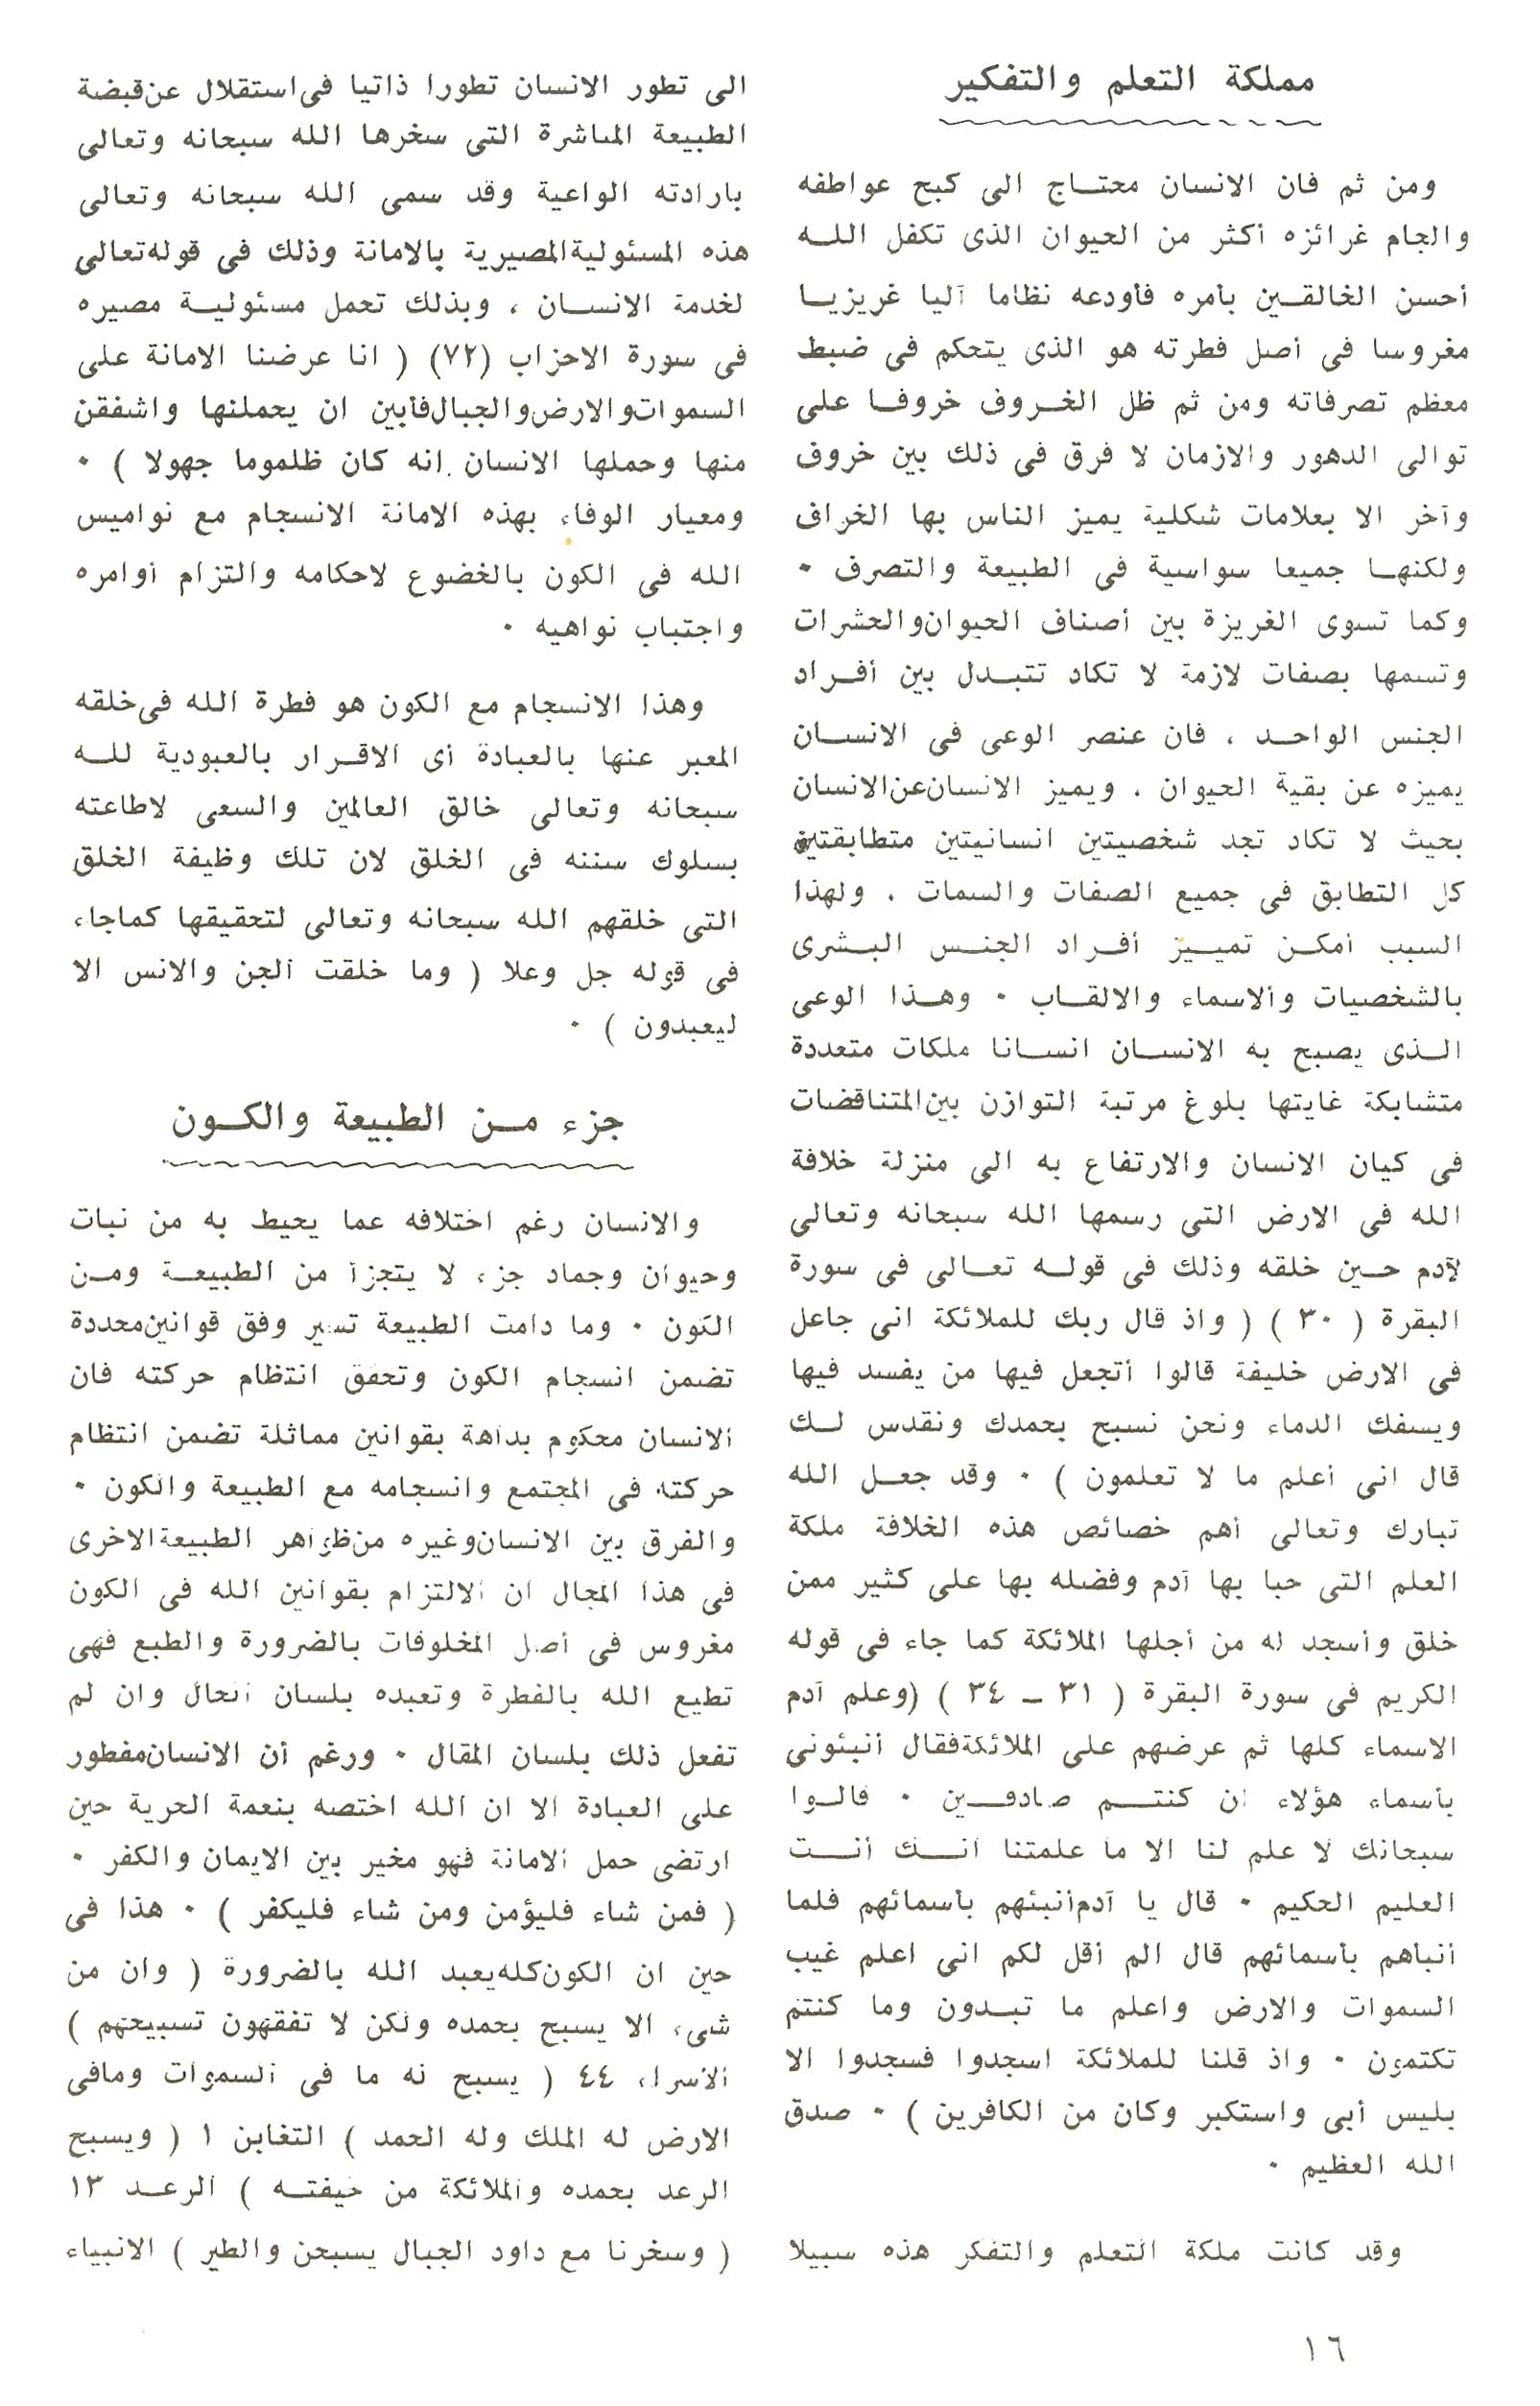 مملكة التعلم والتفكير
ومن ثم فان الانسان محتاج الى كبح عواطفه
والجام غرائزه أكثر من الحيوان الذى تكفل الله
أحسن الخالقين بأمره فأودعه نظاما آليا غريزيا
مغروسا فى أصل فطرته هو الذى يتحكم فى ضبط
معظم تصرفاته ومن ثم ظل الخروف خروفا على
توالى الدهور والازمان لا فرق فى ذلك بين خروف
وآخر الا بعلامات شكلية يميز الناس بها الخراف
ولكنها جميعا سواسية فى الطبيعة والتصرف ٠
وكما تسوى الغريزة بين أصناف الحيوان والحشرات
وتسمها بصفات لازمة لا تكاد تتبدل بين أفراد
الجنس الواحد ، فان عنصر الوعى فى الانسان
يميزه عن بقية الحيوان ، ويميز الانسان عن الانسان
بحيث لا تكاد تجد شخصيتين انسانيتين متطابقتين
كل التطابق فى جميع الصفات والسمات ، ولهذا
السبب أمكن تمييز أفراد الجنس البشرى
بالشخصيات والاسماء والالقاب ٠ وهذا الوعى
الذى يصبح به الانسان انسانا ملكات متعددة
متشابكة غايتها بلوغ مرتبة التوازن بين المتناقضات
فى كيان الانسان والارتفاع به الى منزلة خلافة
الله فى الارض التى رسمها الله سبحانه وتعالى
لآدم حين خلقه وذلك فى قوله تعالى فى سورة
البقرة ( ٣٠ ) ( واذ قال ربك للملائكة انى جاعل
فى الارض خليفة قالوا أتجعل فيها من يفسد فيها
ويسفك الدماء ونحن نسبح بحمدك ونقدس لك
قال انى أعلم ما لا تعلمون ) ٠ وقد جعل الله
تبارك وتعالى أهم خصائص هذه الخلافة ملكة
العلم التى حبا بها آدم وفضله بها على كثير ممن
خلق وأسجد له من أجلها الملائكة كما جاء فى قوله
الكريم فى سورة البقرة ( ٣١ - ٣٤ ) (وعلم آدم
الاسماء كلها ثم عرضهم على الملائكة فقال أنبئونى
بأسماء هؤلاء ان كنتم صادقين ٠ قالوا
سبحانك لا علم لنا الا ما علمتنا انك أنت
العليم الحكيم ٠ قال يا آدم أنبئهم بأسمائهم فلما
أنبأهم بأسمائهم قال الم أقل لكم انى اعلم غيب
السموات والارض واعلم ما تبدون وما كنتم
تكتمون ٠ واذ قلنا للملائكة اسجدوا فسجدوا الا
بليس أبى واستكبر وكان من الكافرين ) ٠ صدق
الله العظيم ٠
وقد كانت ملكة التعلم والتفكر هذه سبيلا
الى تطور الانسان تطورا ذاتيا فى استقلال عن قبضة
الطبيعة المباشرة التى سخرها الله سبحانه وتعالى
بارادته الواعية وقد سمى الله سبحانه وتعالى
هذه المسئولية المصيرية بالامانة وذلك فى قوله تعالى
لخدمة الانسان ، وبذلك تحمل مسئولية مصيره
فى سورة الاحزاب (٧٢) ( انا عرضنا الامانة على
السموات والارض والجبال فأبين ان يحملنها واشفقن
منها وحملها الانسان انه كان ظلموما جهولا ) ٠
ومعيار الوفاء بهذه الامانة الانسجام مع نواميس
الله فى الكون بالخضوع لاحكامه والتزام أوامره
واجتباب نواهيه ٠
وهذا الانسجام مع الكون هو فطرة الله فى خلقه
المعبر عنها بالعبادة أى الاقرار بالعبودية لله
سبحانه وتعالى خالق العالمين والسعى لاطاعته
بسلوك سننه فى الخلق لان تلك وظيفة الخلق
التى خلقهم الله سبحانه وتعالى لتحقيقها كماجاء
فى قوله جل وعلا ( وما خلقت الجن والانس الا
ليعبدون ) ٠
جزء من الطبيعة والكون
والانسان رغم اختلافه عما يحيط به من نبات
وحيوان وجماد جزء لا يتجزأ من الطبيعة ومن
الكون ٠ وما دامت الطبيعة تسير وفق قوانين محددة
تضمن انسجام الكون وتحقق انتظام حركته فان
الانسان محكوم بداهة بقوانين مماثلة تضمن انتظام
حركته فى المجتمع وانسجامه مع الطبيعة والكون ٠
والفرق بين الانسان وغيره من ظواهر الطبيعة الاخرى
فى هذا المجال ان الالتزام بقوانين الله فى الكون
مغروس فى أصل المخلوقات بالضرورة والطبع فهى
تطيع الله بالفطرة وتعبده بلسان الحال وان لم
تفعل ذلك بلسان المقال ٠ ورغم أن الانسان مفطور
على العبادة الا ان الله اختصه بنعمة الحرية حين
ارتضى حمل الامانة فهو مخير بين الايمان والكفر ٠
( فمن شاء فليؤمن ومن شاء فليكفر ) ٠ هذا فى
حين ان الكون كله يعبد الله بالضرورة ( وان من
شىء الا يسبح بحمده ولكن لا تفقهون تسبيحهم )
الاسراء ٤٤ ( يسبح له ما فى السموات ومافى
الارض له الملك وله الحمد ) التغابن ١ ( ويسبح
الرعد بحمده والملائكة من خيفته ) الرعد ١٣
( وسخرنا مع داود الجبال يسبحن والطير ) الانبياء
١٦